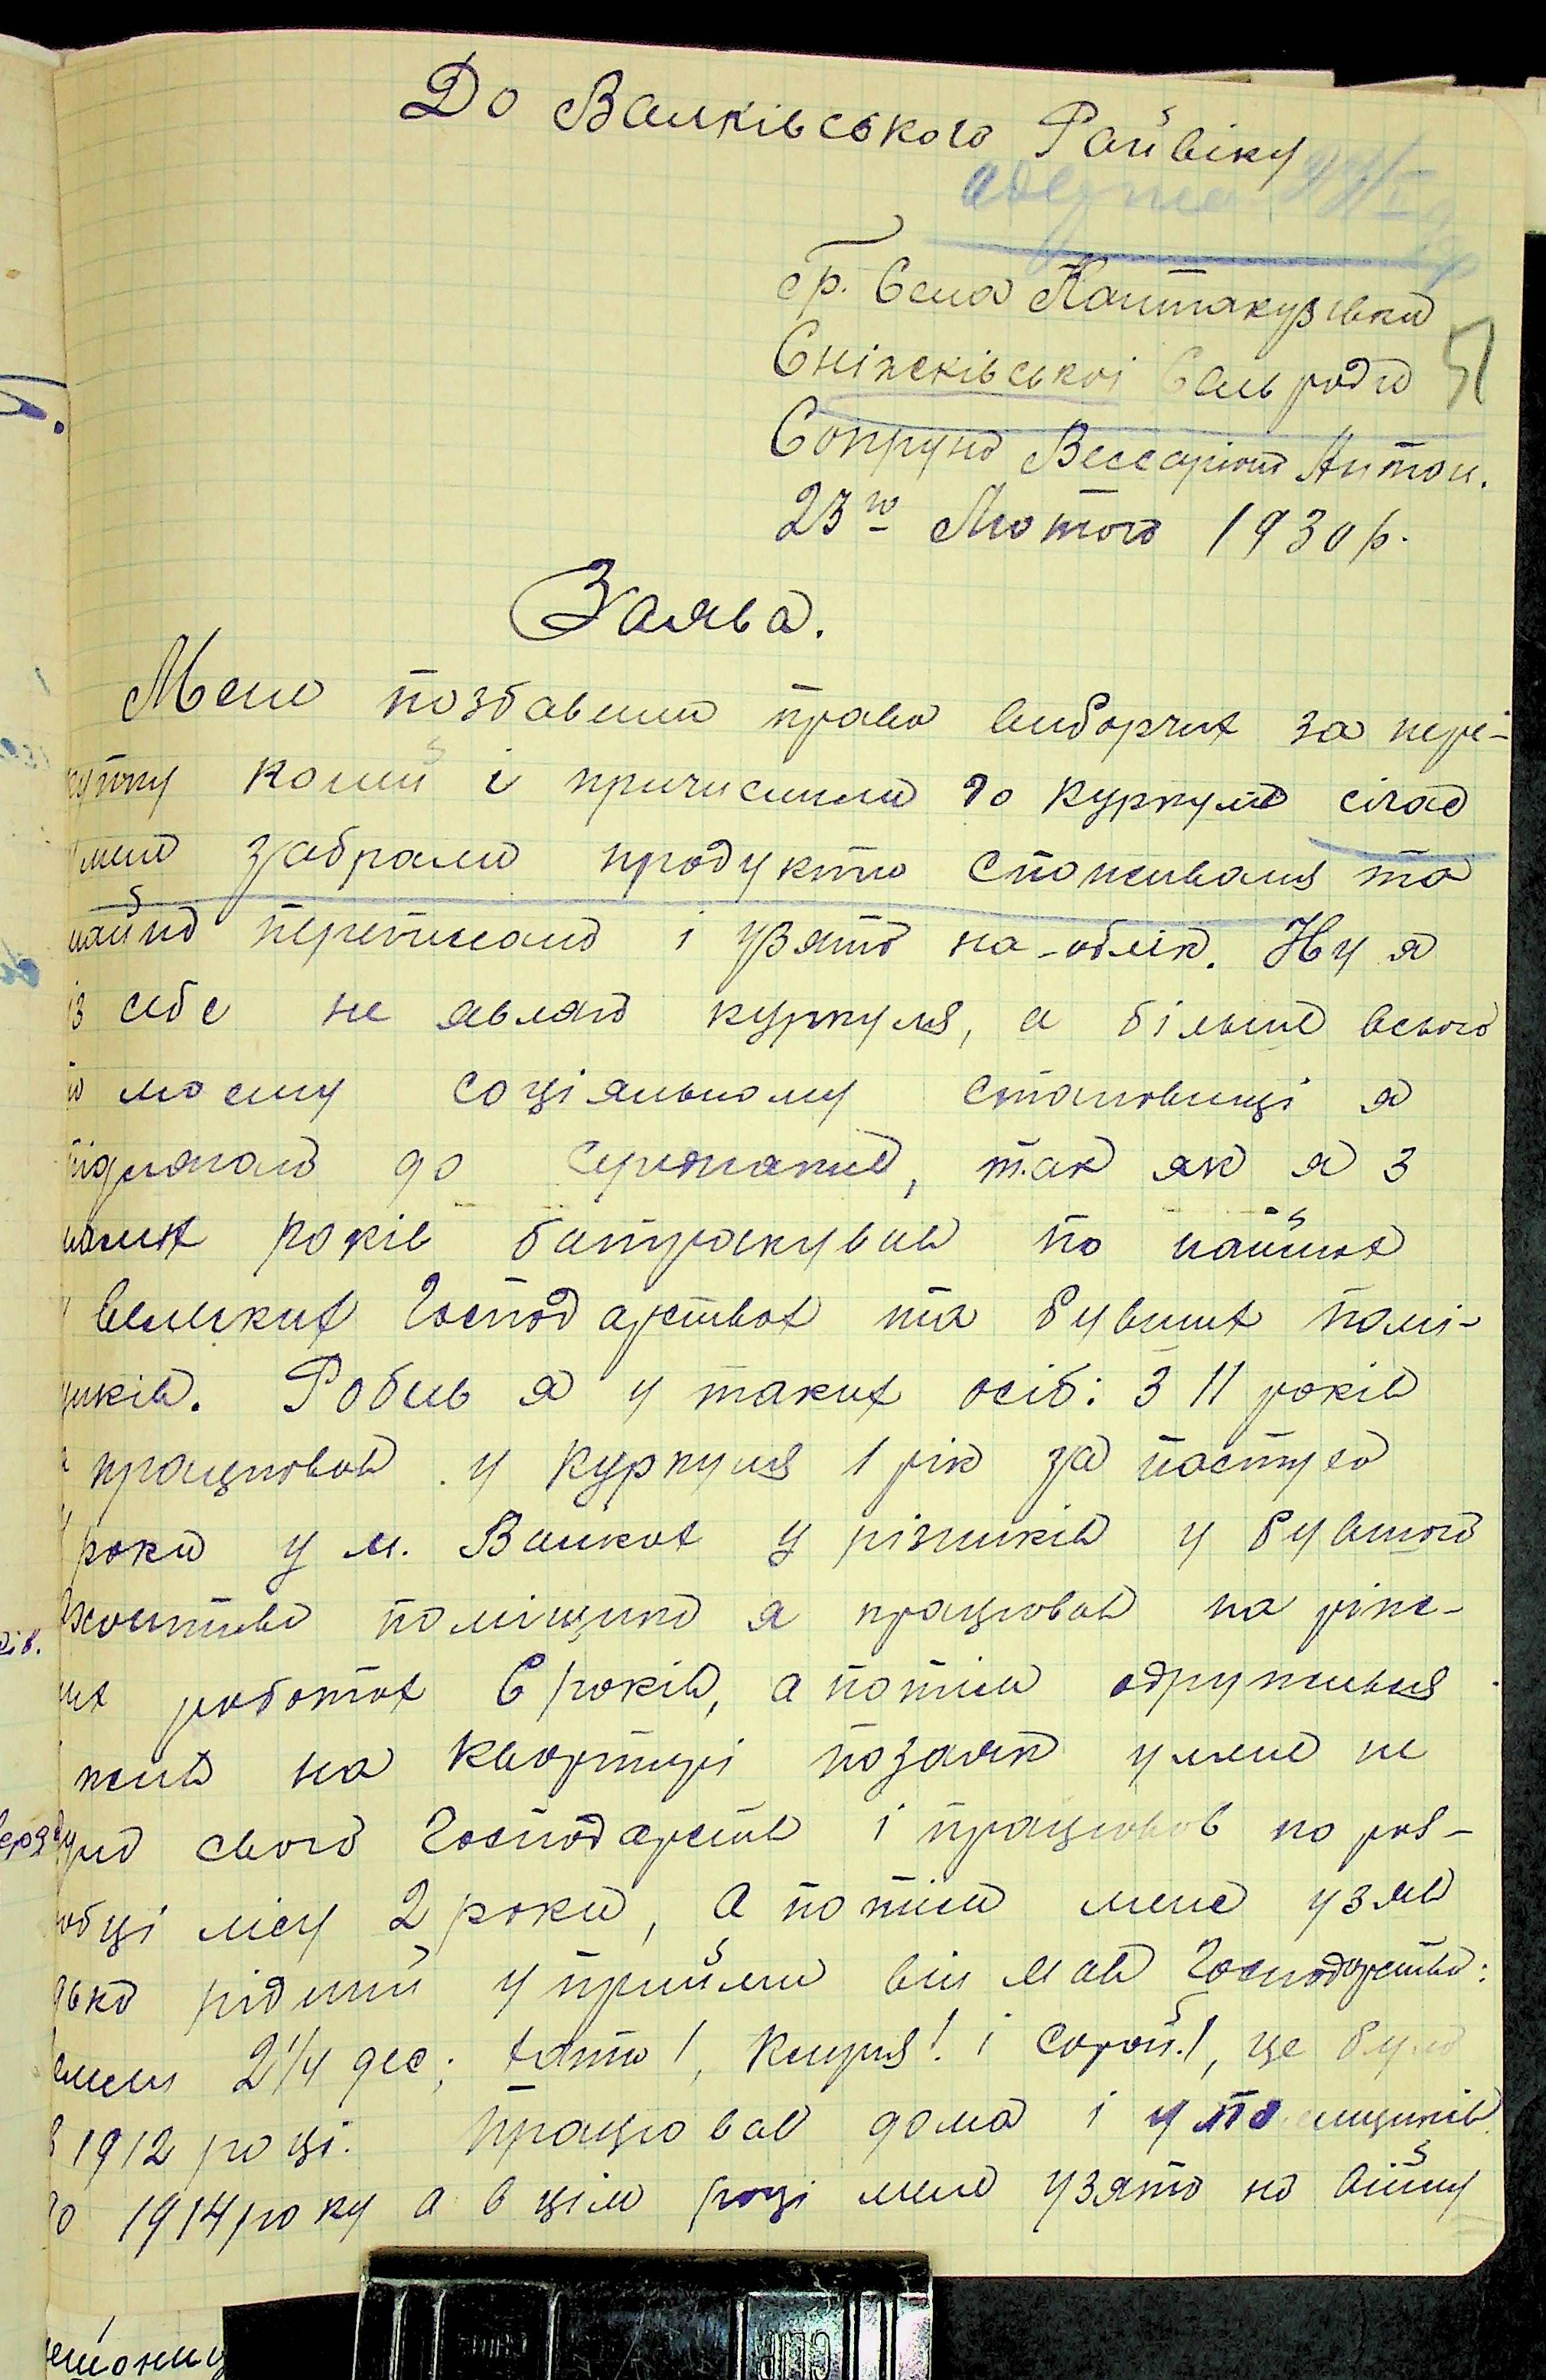 До Валківського Райвіку
гр. Села Кантакузівки
Сніжківської Сельради
Сопруна Вессаріона Антон.
23го Лютого 1930 р.
Заява.
Мене позбавили права виборчих за пері-
купку коний і причислили до куркулів січас
у мене забрали продукти споживаня та
майно переписано і узято на-облік. Ну я
із себе не являю куркуля, а більше всього
по моєму соціяльному становищі я
підлягаю до середняків, так як я з
малих років батракував по наймах
у великих господарствах та бувших помі-
щиків. Робив я у таких осіб: З 11 років
я працював у куркуля 1 рік за пастуха
роки у м. Валках у різників у бувшого
поміщика я працював на ріже-
их роботах 6 років, а потім одружився
жив на квартирі позаяк у мене не
було свого господарств і працював по роз-
робці лісу 2 роки, а потім мене узяв
дядько рідний у прийми він мав господарство:
землі 2 1/4 дес; хати 1, клуня 1. і сорой. 1, це було
в 1912 році. Працював дома і у помещиків
до 1914 року а в цім році мене узято на війну